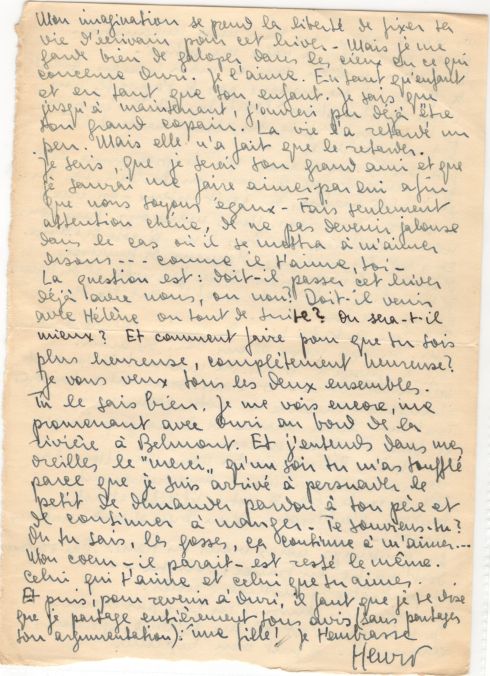 Mon imagination se prend la liberté de fixer ta
vie d'écrivain pour cet hiver. Mais je me
garde bien de galoper dans les cieux en ce qui
concerne Ouri. Je l'aime. En tant qu'enfant
et en tant que ton enfant. Je sais, que
jusqu'à maintenant, j'aurai pu déjà être
son grand copain. La vie l'a retardé un
peu. Mais elle n'a fait que le retarder.
Je sais, que je serai son grand ami et que
je saurai me faire aimer par lui afin
que nous soyons égaux - Fais seulement
attention chérie, de ne pas devenir jalouse
dans le cas où il se mettra à m'aimer
disons --- comme il t'aime, toi -
La question est: doit-il passer cet hiver
déjà avec nous, ou non? Doit-il venir
avec Hélène ou tout de suite? Où sera-t-il
mieux? Et comment faire pour que tu sois
plus heureuse, complètement heureuse?
Je vous veux tous les deux ensembles.
Tu le sais bien. Je me vois encore, me
promenant avec Ouri au bord de la
rivière à Belmont. Et j'entends dans mes
oreilles le "merci" qu'un soir tu m'as soufflé
parce que je suis arrivé à persuader le
petit de demander pardon à son père et
de continuer à manger - Te souviens-tu?
Ou tu sais, les gosses, ça continue à m'aimer...
Mon coeur - il parait - est resté le même.
Celui qui t'aime et celui que tu aimes.
Et puis, pour revenir à Ouri, il faut que je te dise
que je partage entièrement ton avis (sans partager
ton argumentation): une fille! Je t'embrasse